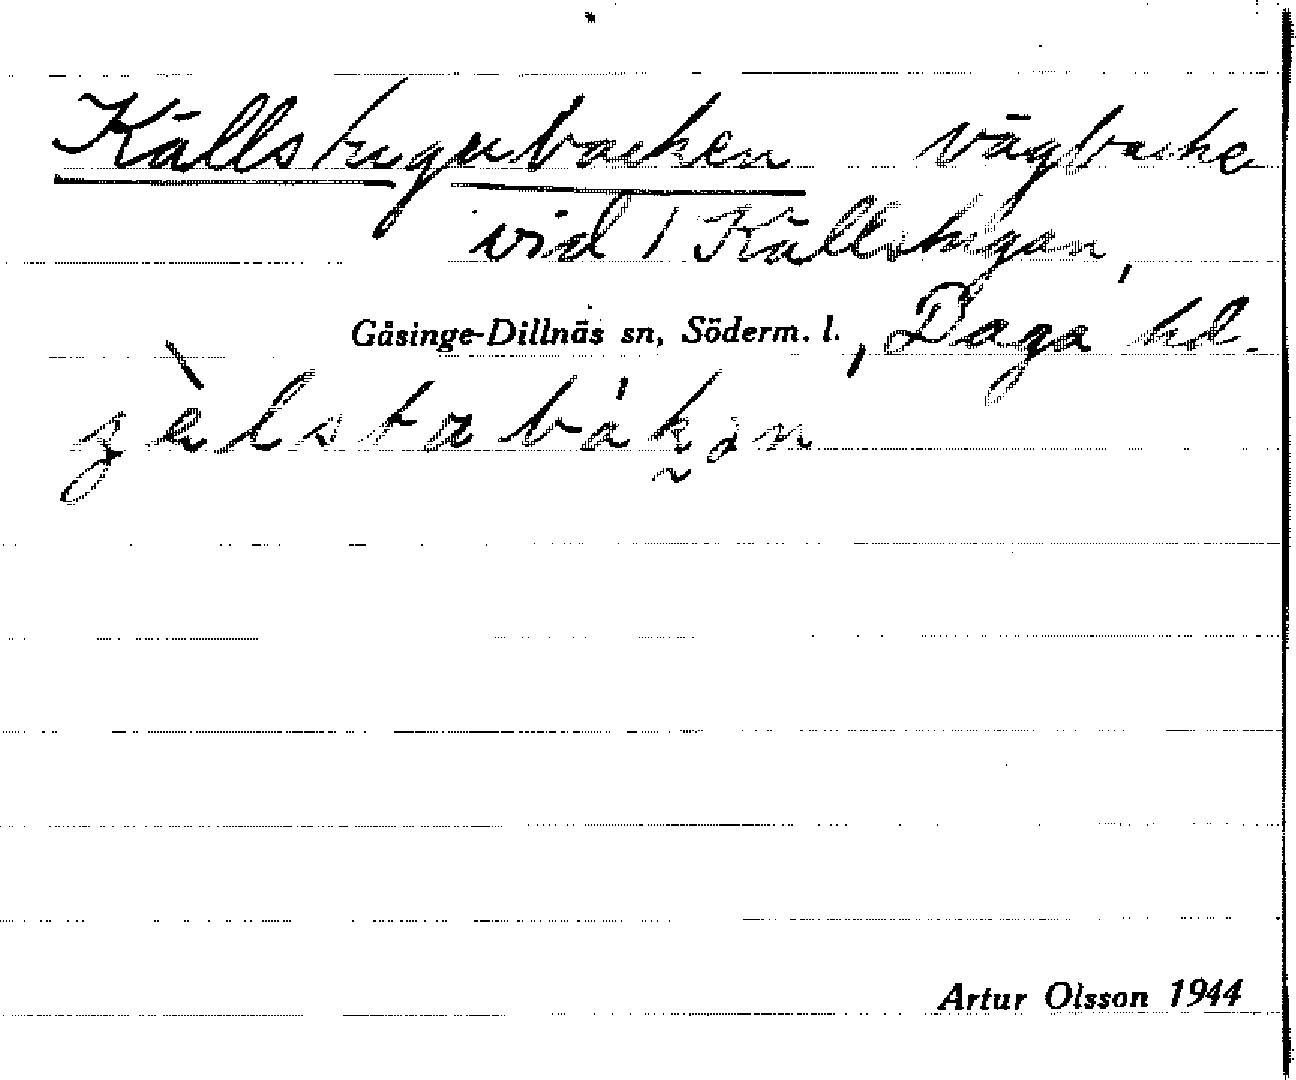 Källstugubacken vägbacke
vid / Källstugan,
Gåsinge-Dillnäs sn, Söderm. l., Daga hd.
Artur Olsson 1944